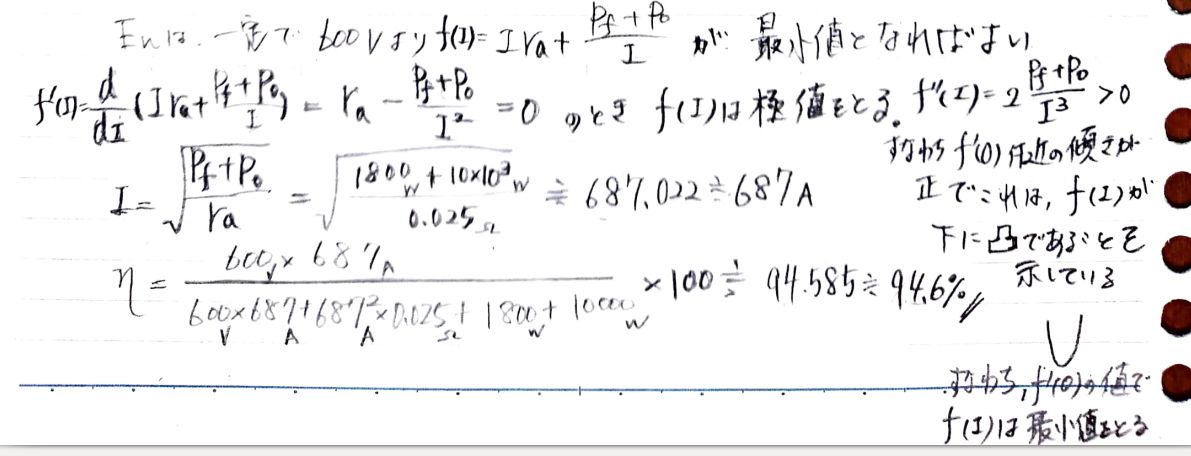 Enは、一定で 600Vより f(I)= Ira + (Pf+P0)/I が 最小値となればよい
f'(I)= d/dI (Ira + (Pf+P0)/I) = ra - (Pf+P0)/I² = 0 のとき f(I)は極値をとる。 f''(I)= 2 (Pf+P0)/I³ > 0
すなわち f'(0)付近の傾きが
正でこれは、f(I)が
下に凸であることを
示している
I = √((Pf+P0)/ra) = √((1800W + 10×10³W)/0.025Ω) ≒ 687.022 ≒ 687A
η = (600V × 687A)/(600V×687A+687²A×0.025Ω+1800W+10000W) ×100 ≒ 94.585 ≒ 94.6%
すなわち、f'(0)の値で
f(I)は最小値をとる